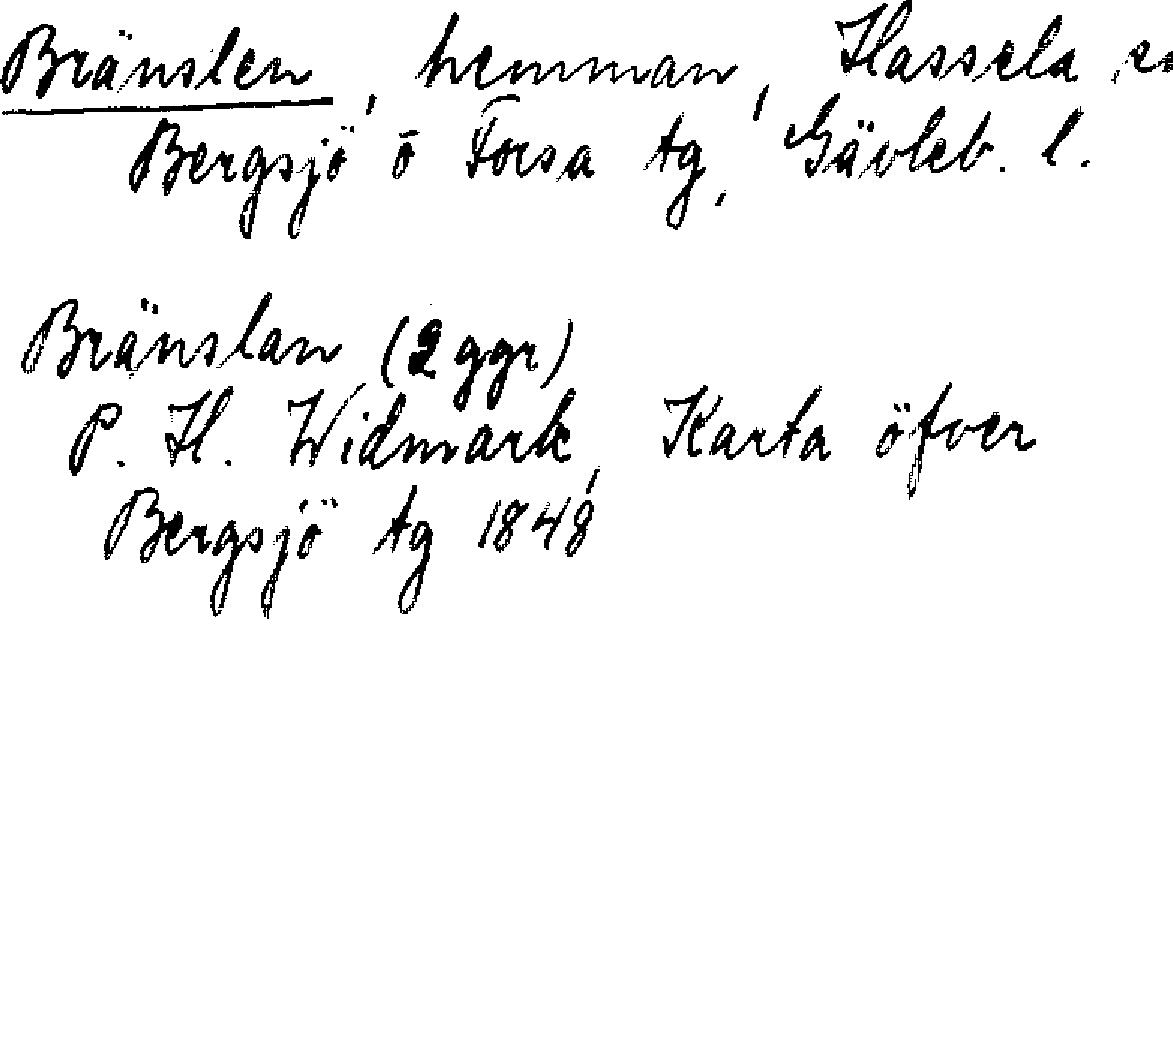 Bränslen, hemman, Hassela
Bergsjö o Forsa tg, Gävleb. l.
Bränslan (2 ggr)
P. H. Widmark, Karta öfver
Bergsjö tg 1848